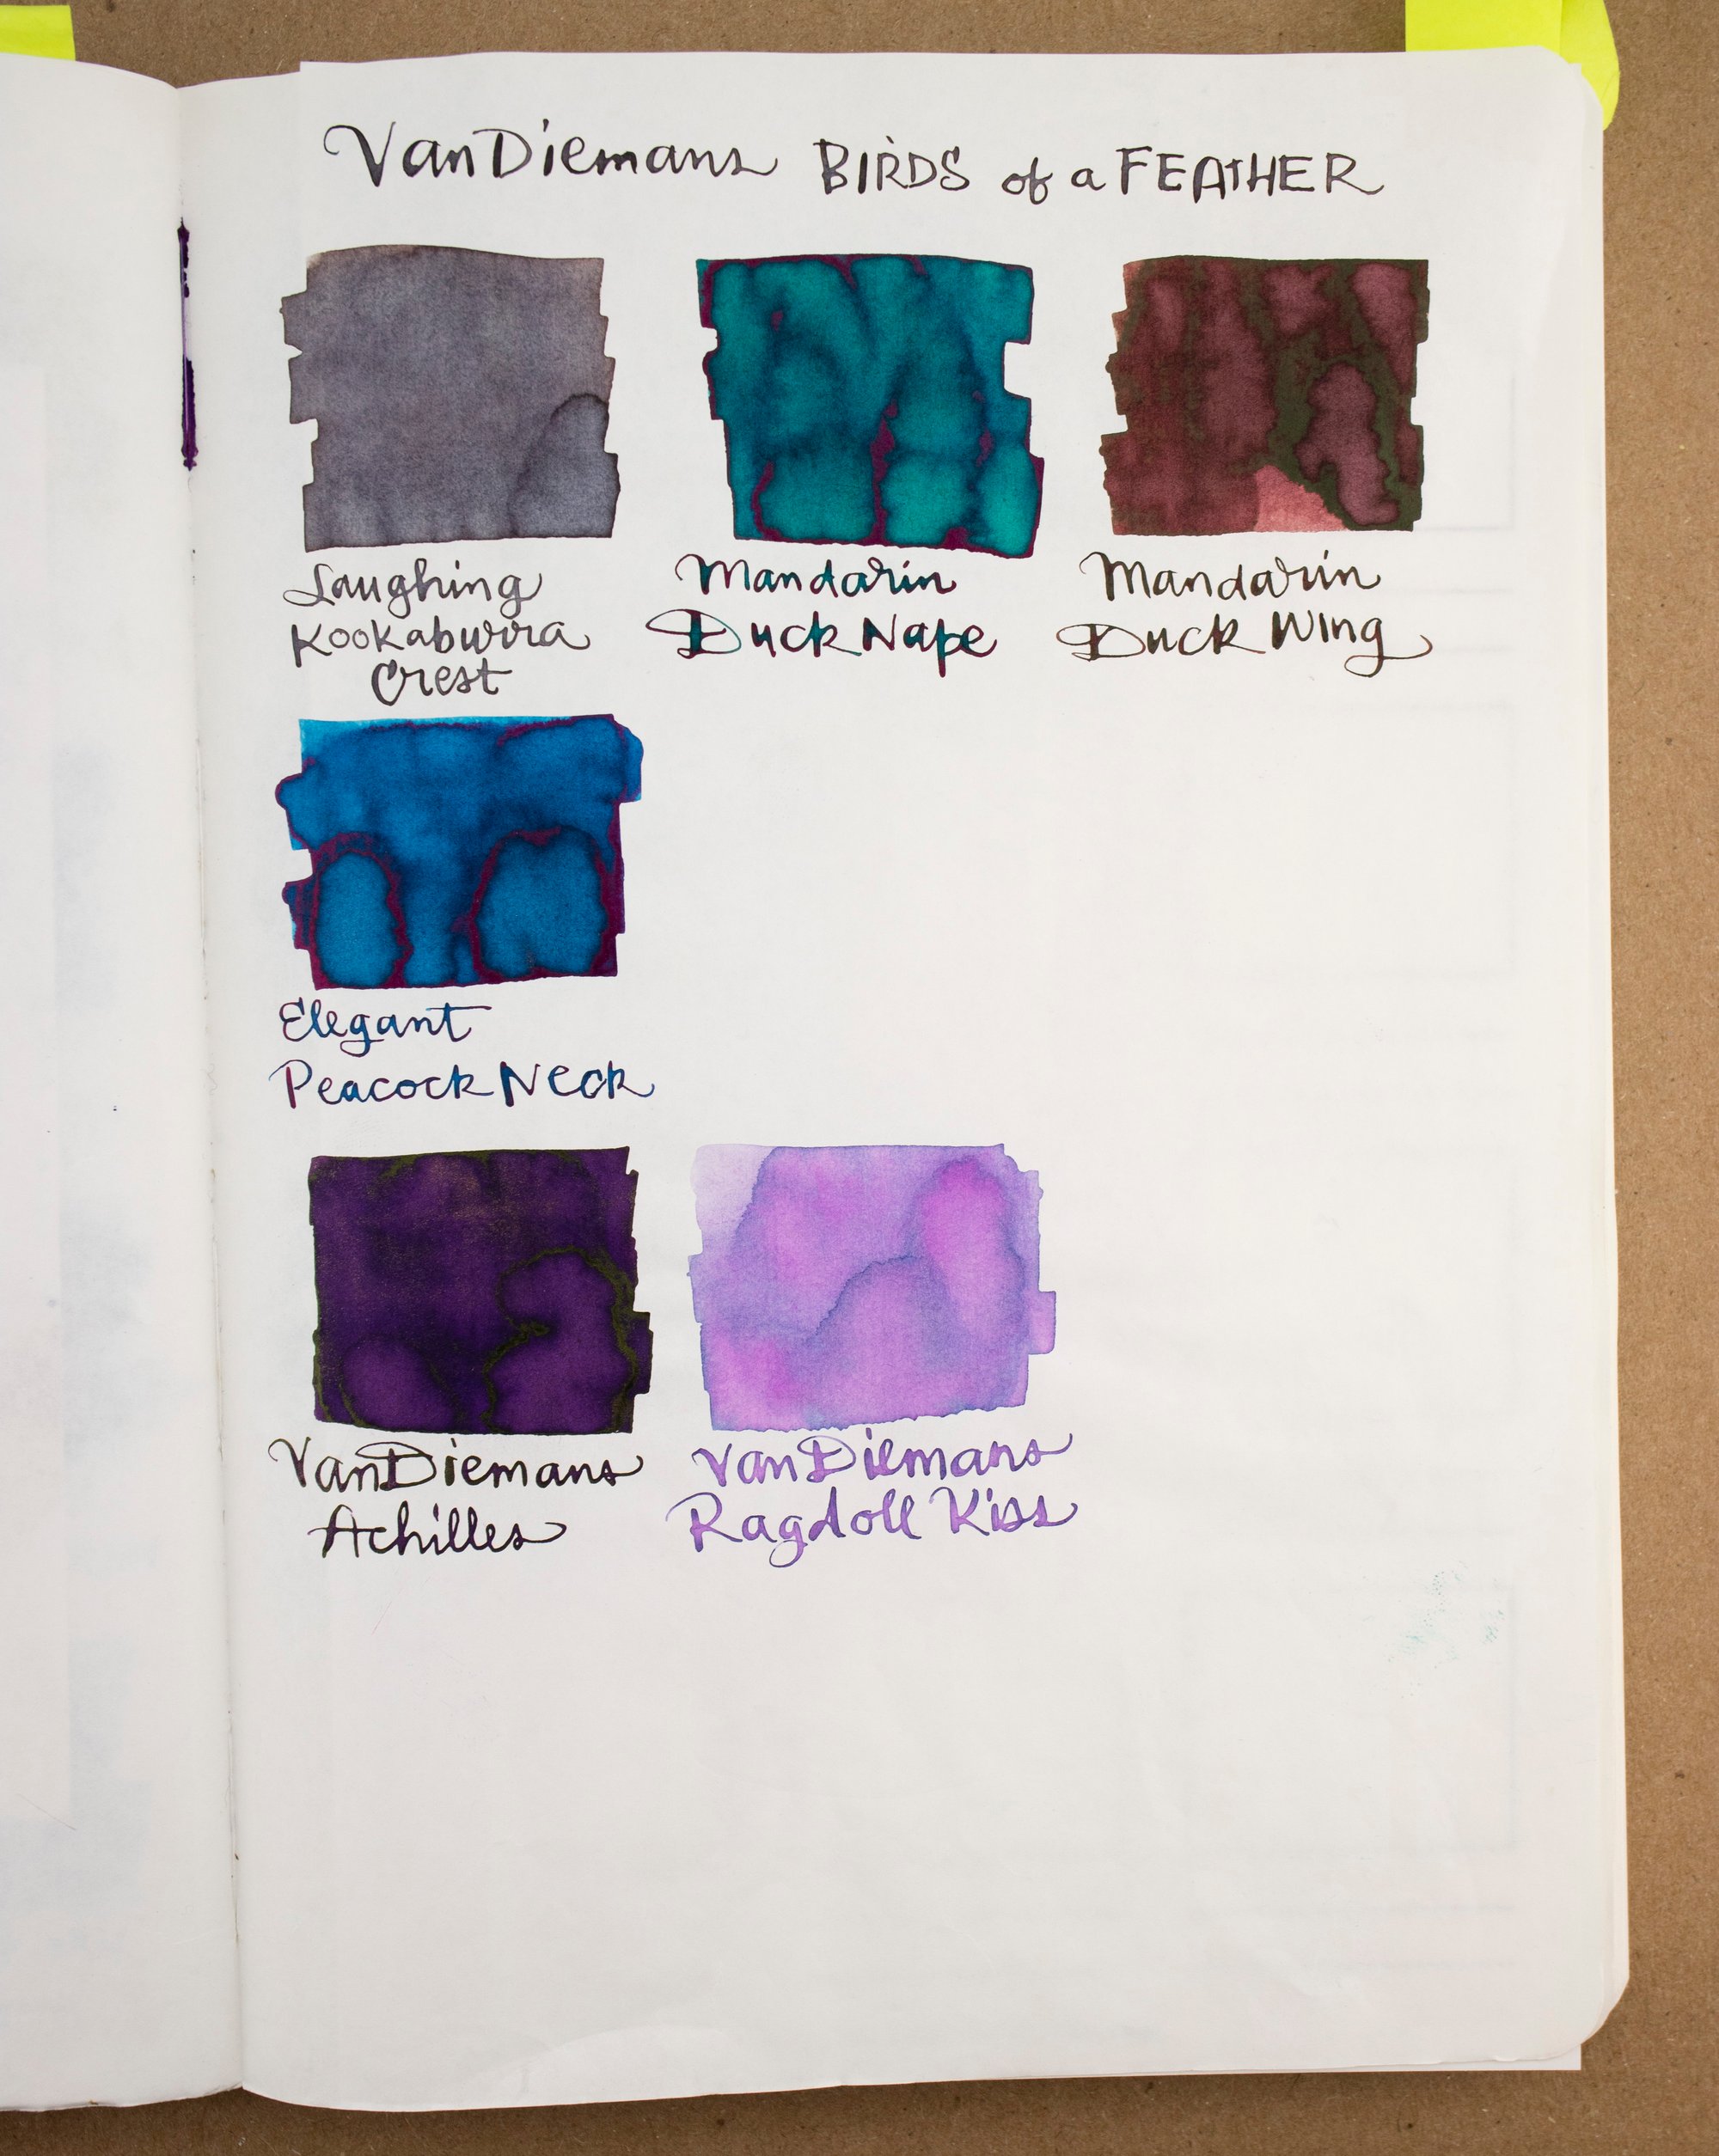 VanDiemans BIRDS of a FEATHER
Laughing
Kookaburra
Crest
Mandarin
Duck Nape
Mandarin
Duck Wing
Elegant
Peacock Neck
VanDiemans
Achilles
VanDiemans
Ragdoll Kiss